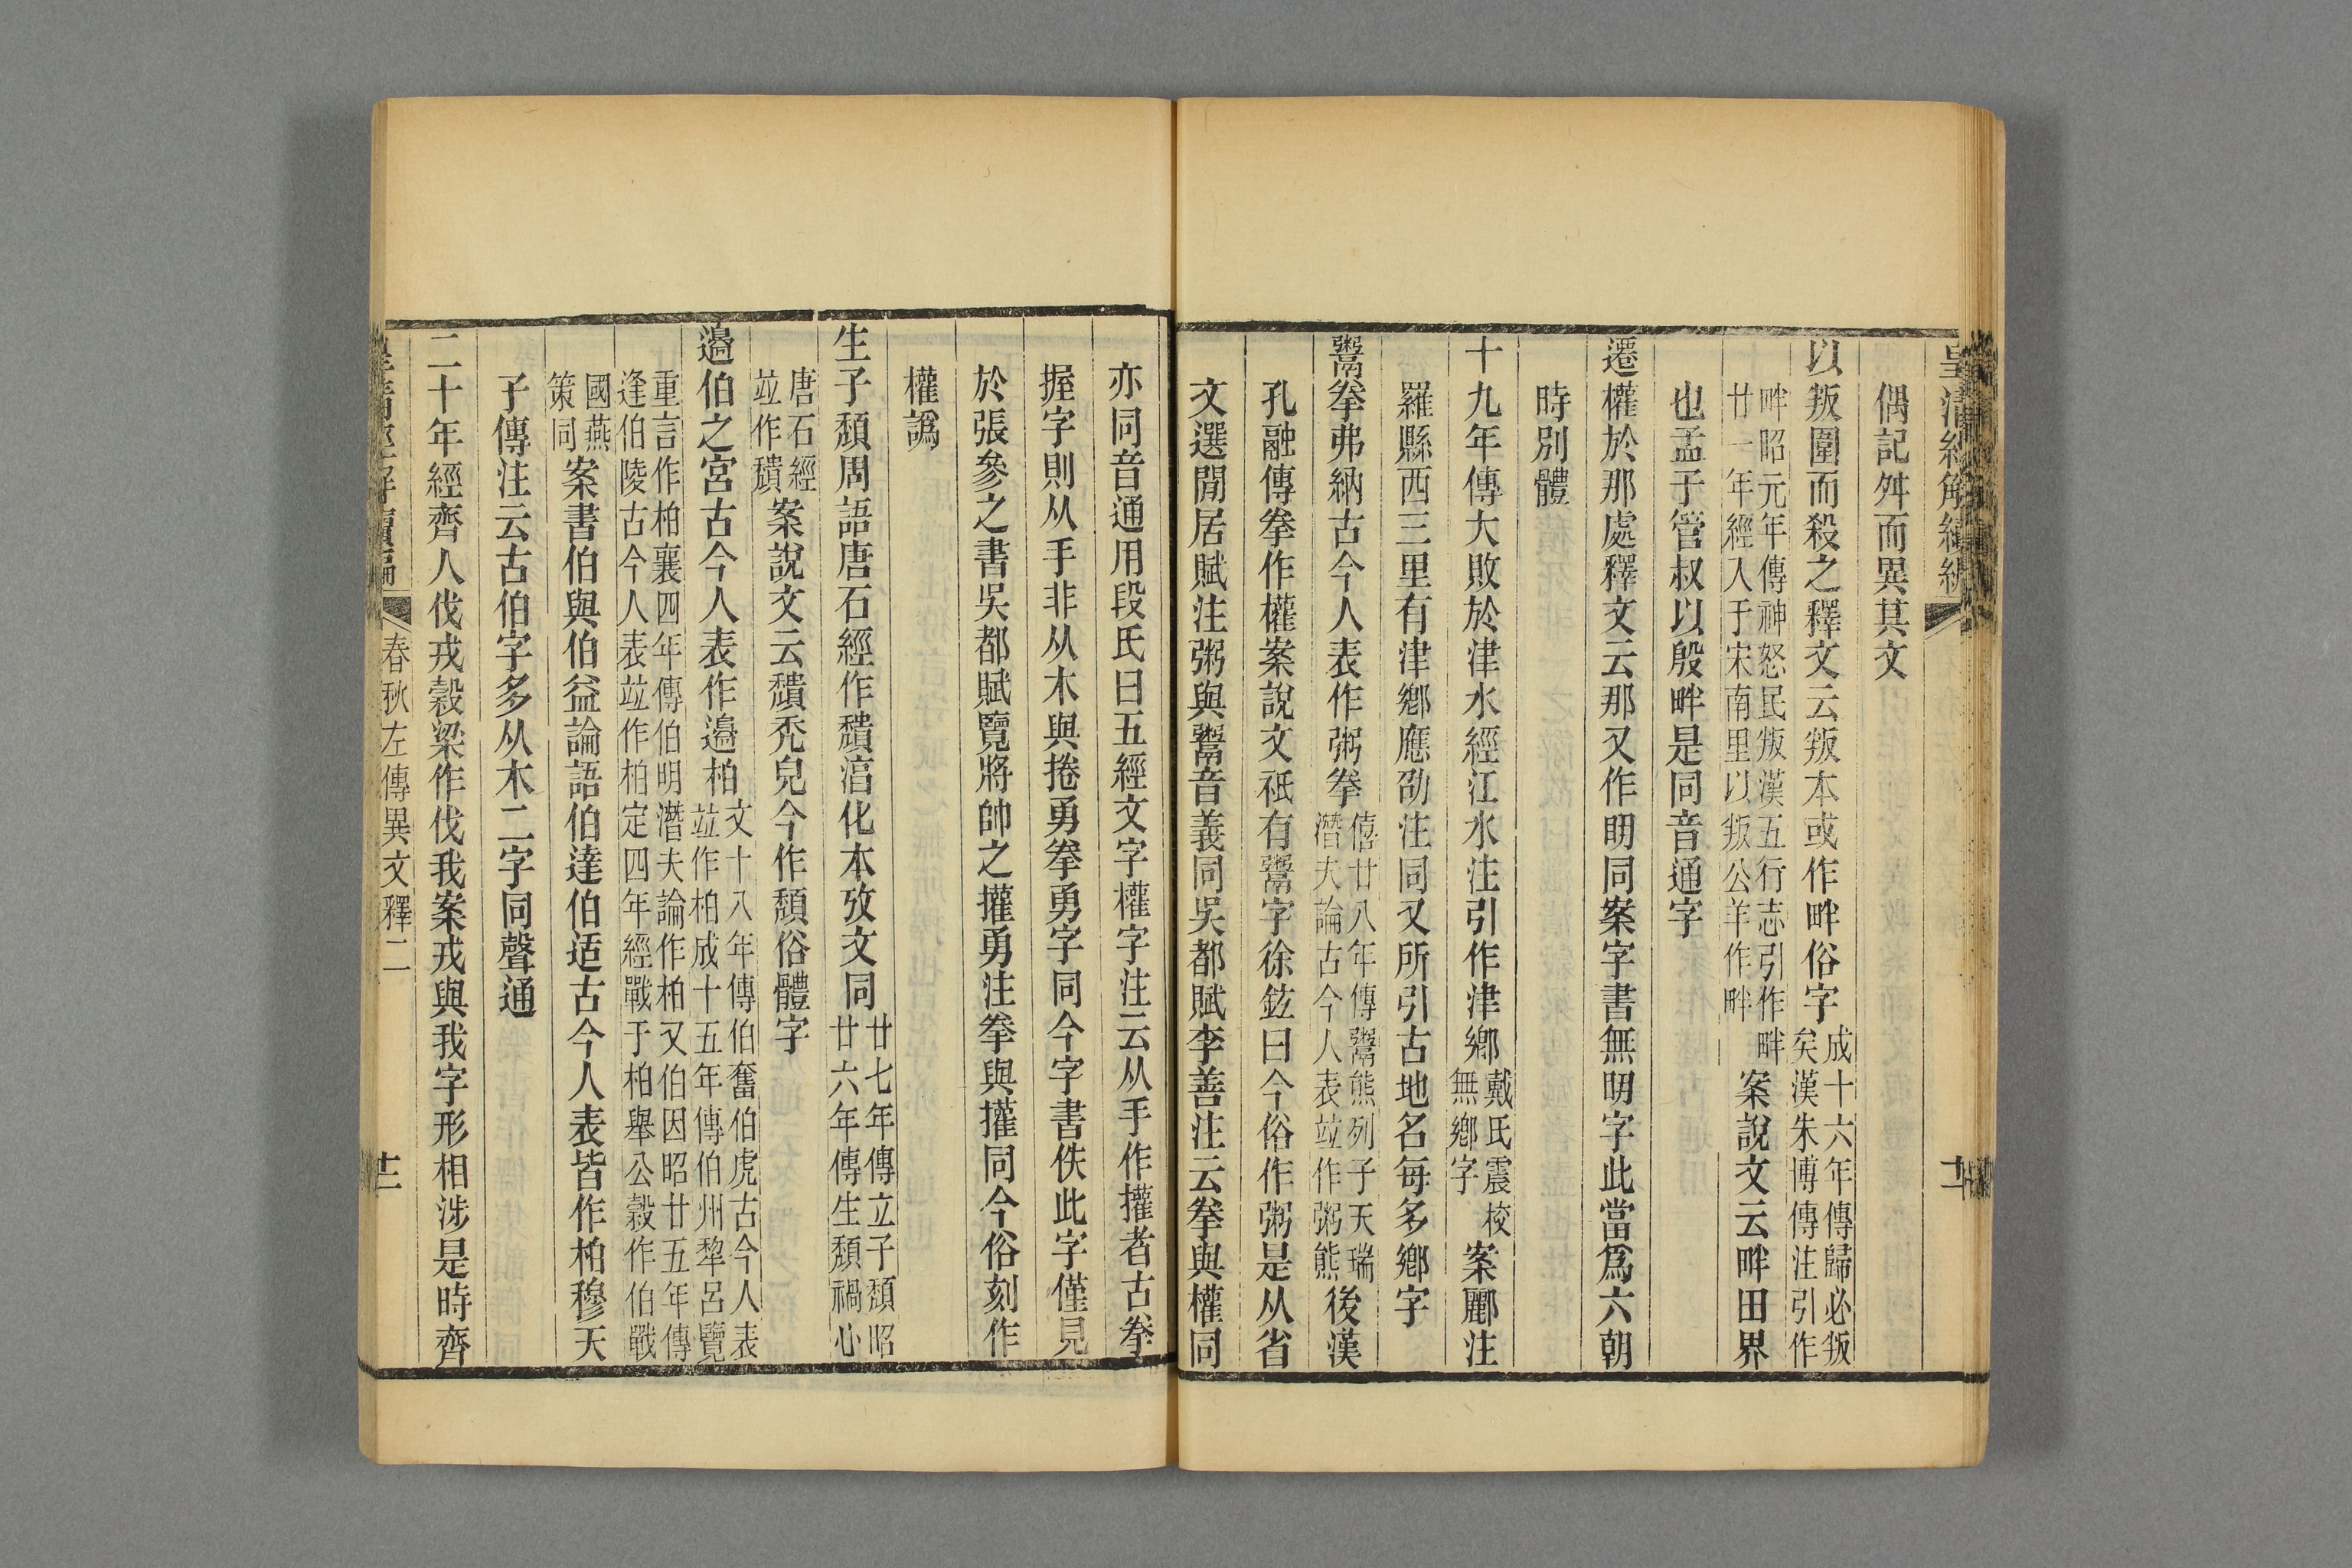 皇清經解續編
偶記舛而異其文
以叛圍而殺之釋文云叛本或作畔俗字成十六年傳歸必叛矣漢朱博傳注引作
畔昭元年傳神怒民叛漢五行志引作畔廿一年經入于宋南里以叛公羊作畔案說文云畔田界
也孟子管叔以殷畔是同音通字
遷權於那處釋文云那又作䎶同案字書無䎶字此當爲六朝
時別體
十九年傳大敗於津水經江水注引作津鄉戴氏震校無鄉字案酈注
羅縣西三里有津鄉應劭注同又所引古地名每多鄉字
鬻拳弗納古今人表作粥拳僖廿八年傳鬻熊列子天瑞潛夫論古今人表竝作粥熊後漢
孔融傳拳作權案說文祇有鬻字徐鉉曰今俗作粥是从省
文選閒居賦注粥與鬻音義同吳都賦李善注云拳與權同
亦同音通用段氏曰五經文字權字注云从手作㩲者古拳
握字則从手非从木與捲勇拳勇字同今字書佚此字僅見
於張參之書吳都賦覽將帥之㩲勇注拳與㩲同今俗刻作
權譌
生子頹周語唐石經作穨涫化本攷文同廿七年傳立子頹昭廿六年傳生頹禍心
唐石經竝作穨案說文云穨禿皃今作頹俗體字
邊伯之宮古今人表作邊柏文十八年傳伯奮伯虎古今人表竝作柏成十五年傳伯州犂呂覽
重言作柏襄四年傳伯明潛夫論作柏又伯因昭廿五年傳逢伯陵古今人表竝作柏定四年經戰于柏舉公穀作伯戰
國燕策同案書伯與伯益論語伯達伯适古今人表皆作柏穆天
子傳注云古伯字多从木二字同聲通
二十年經齊人伐戎穀梁作伐我案戎與我字形相涉是時齊
皇清經解續編
春秋左傳異文釋二